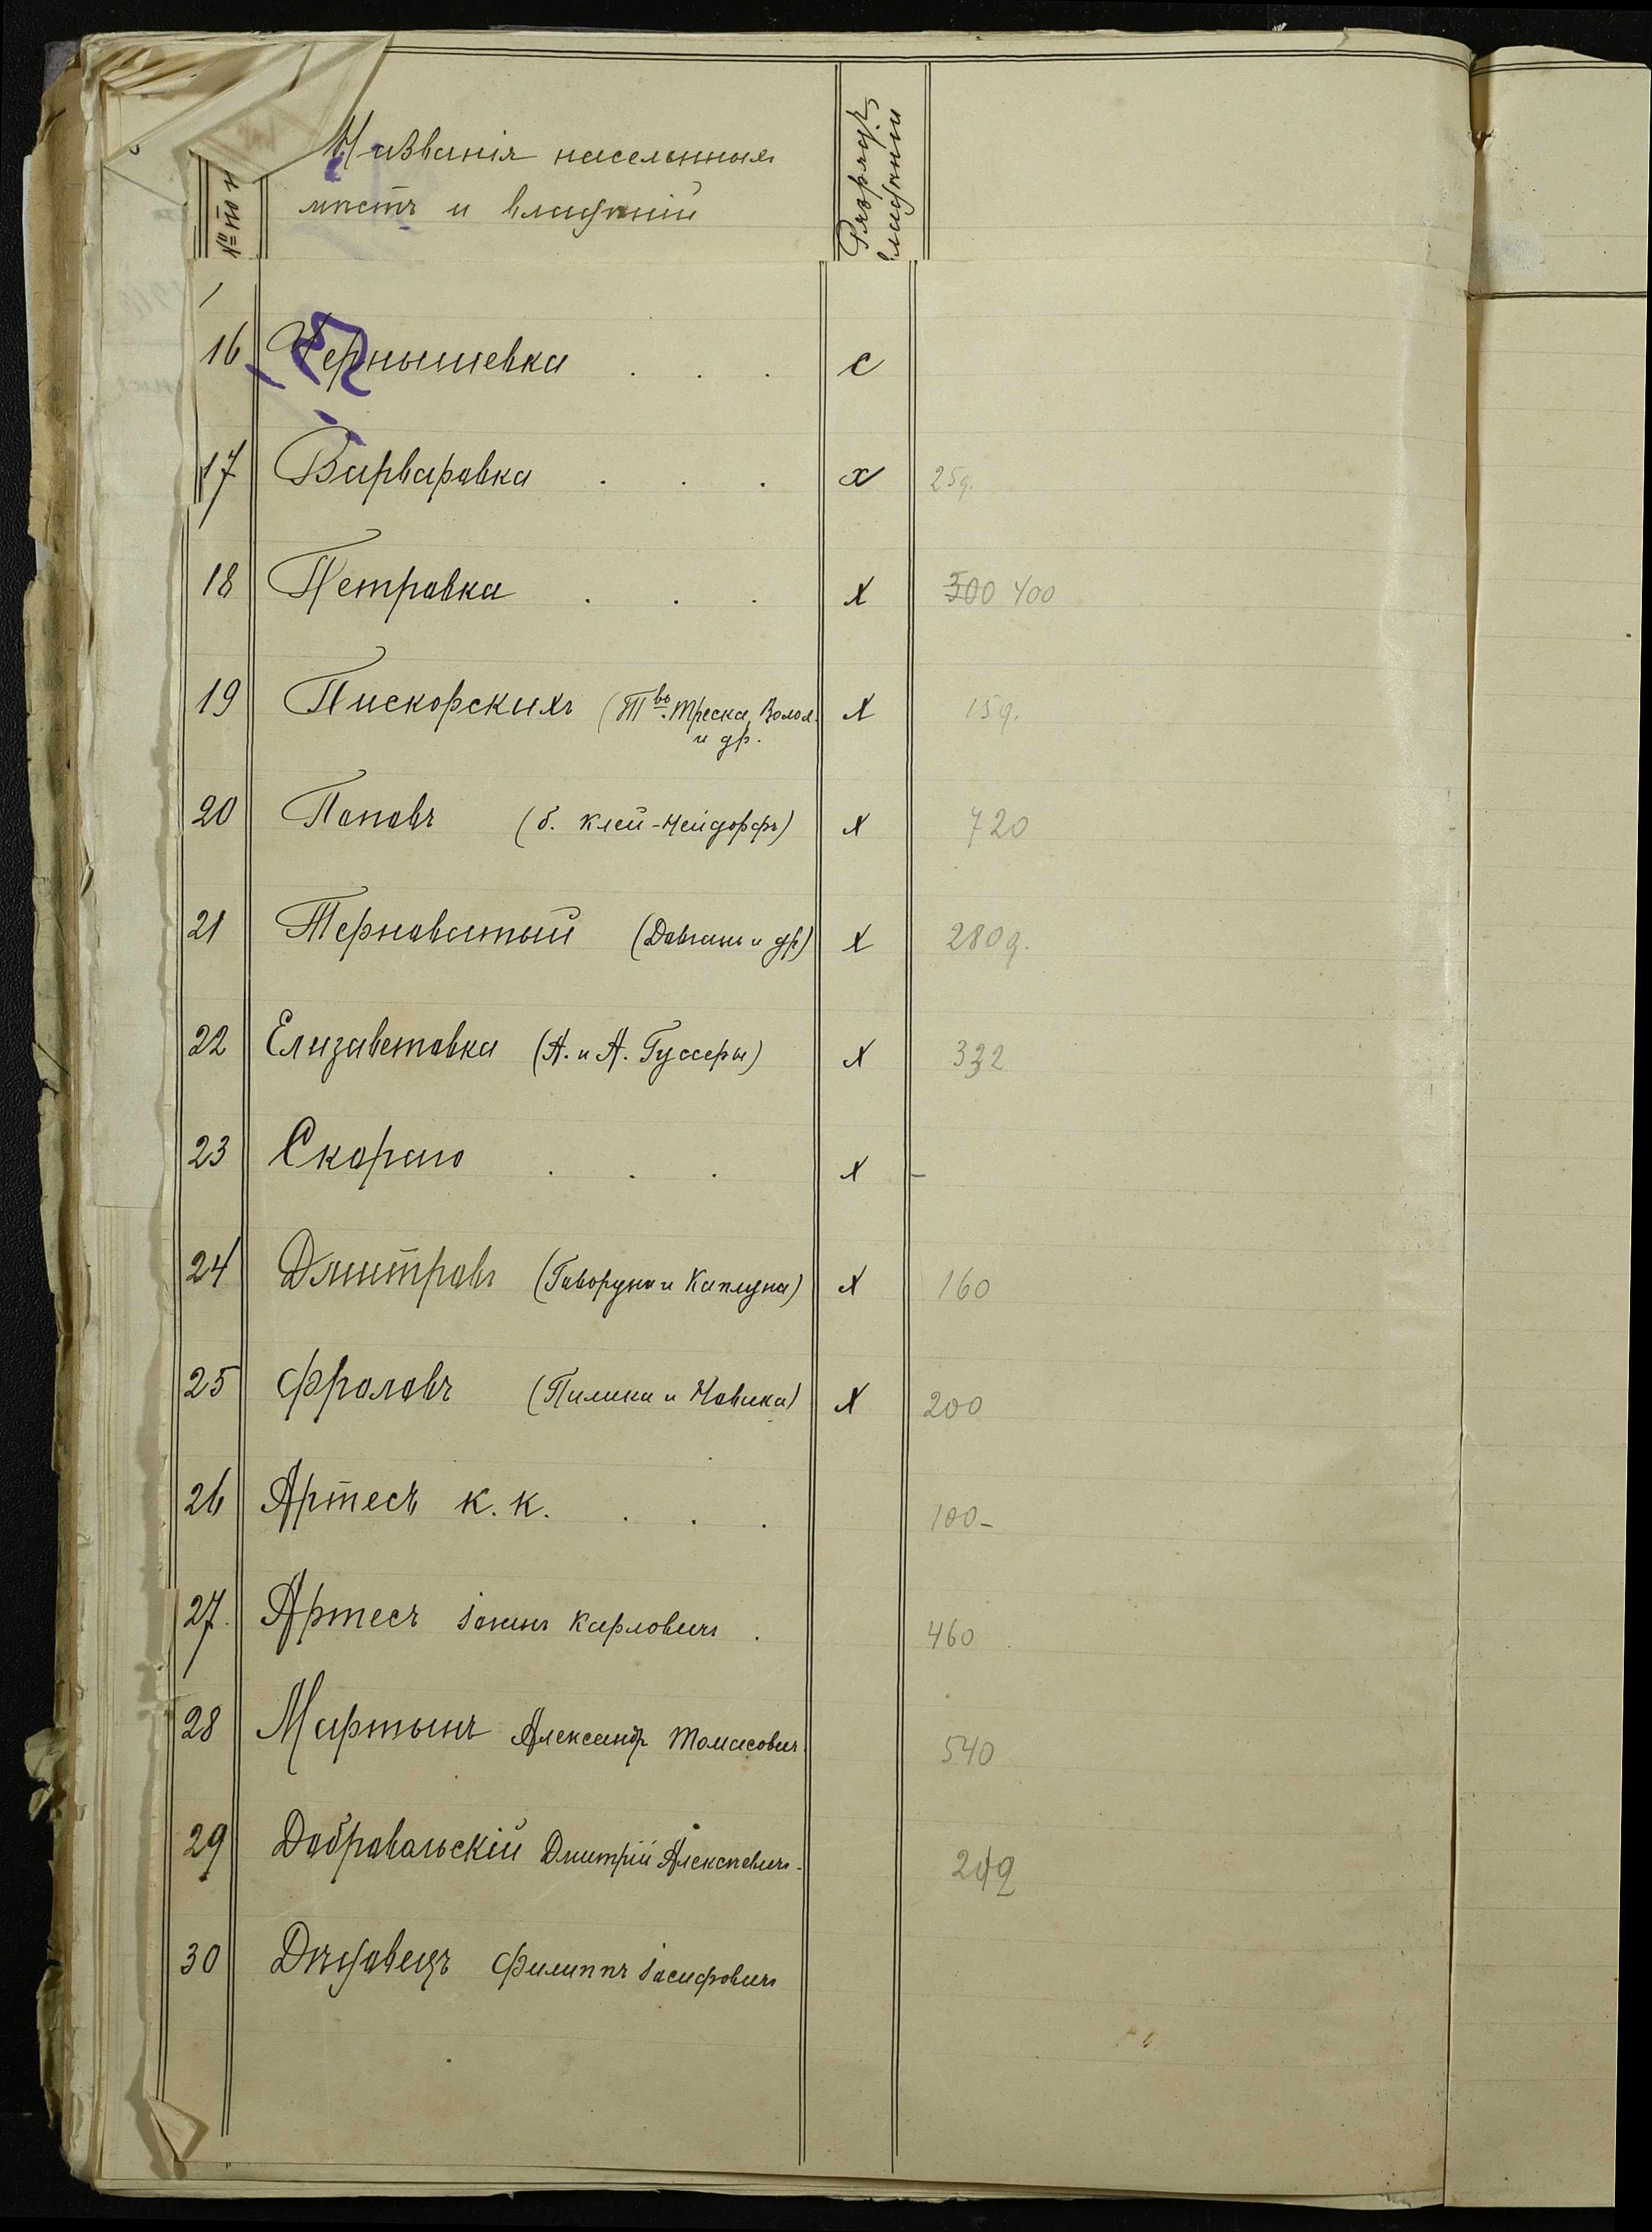 № по
Названія населенныхъ
мѣстъ и владѣній
Разряд.
владѣнія
16 Чернышевка . . . с
17 Варваровка . . . х 25д.
18 Петровка . . . х 300 400
19 Пискорскихъ (Т-во Треска, Волох. х 15д.
и др.
20 Поповъ (б. Клей-Нейдорфъ) х 720
21 Терноватый (Довгань и др) х 280д.
22 Елизаветовка (А. и А. Гуссеры) х 332
23 Скораго . . . х –
24 Дмитровъ (Говоруна и Каплуна) х 160
25 Фроловъ (Пилипа и Новика) х 200
26 Артесъ К. К. . . . 100-
27 Артесъ Іоганъ Карловичъ . 460
28 Мартынъ Александр Томасович. 540
29 Добровольскій Дмитрій Алексѣевичъ.
30 Дѣдовецъ Филиппъ Іосифовичъ